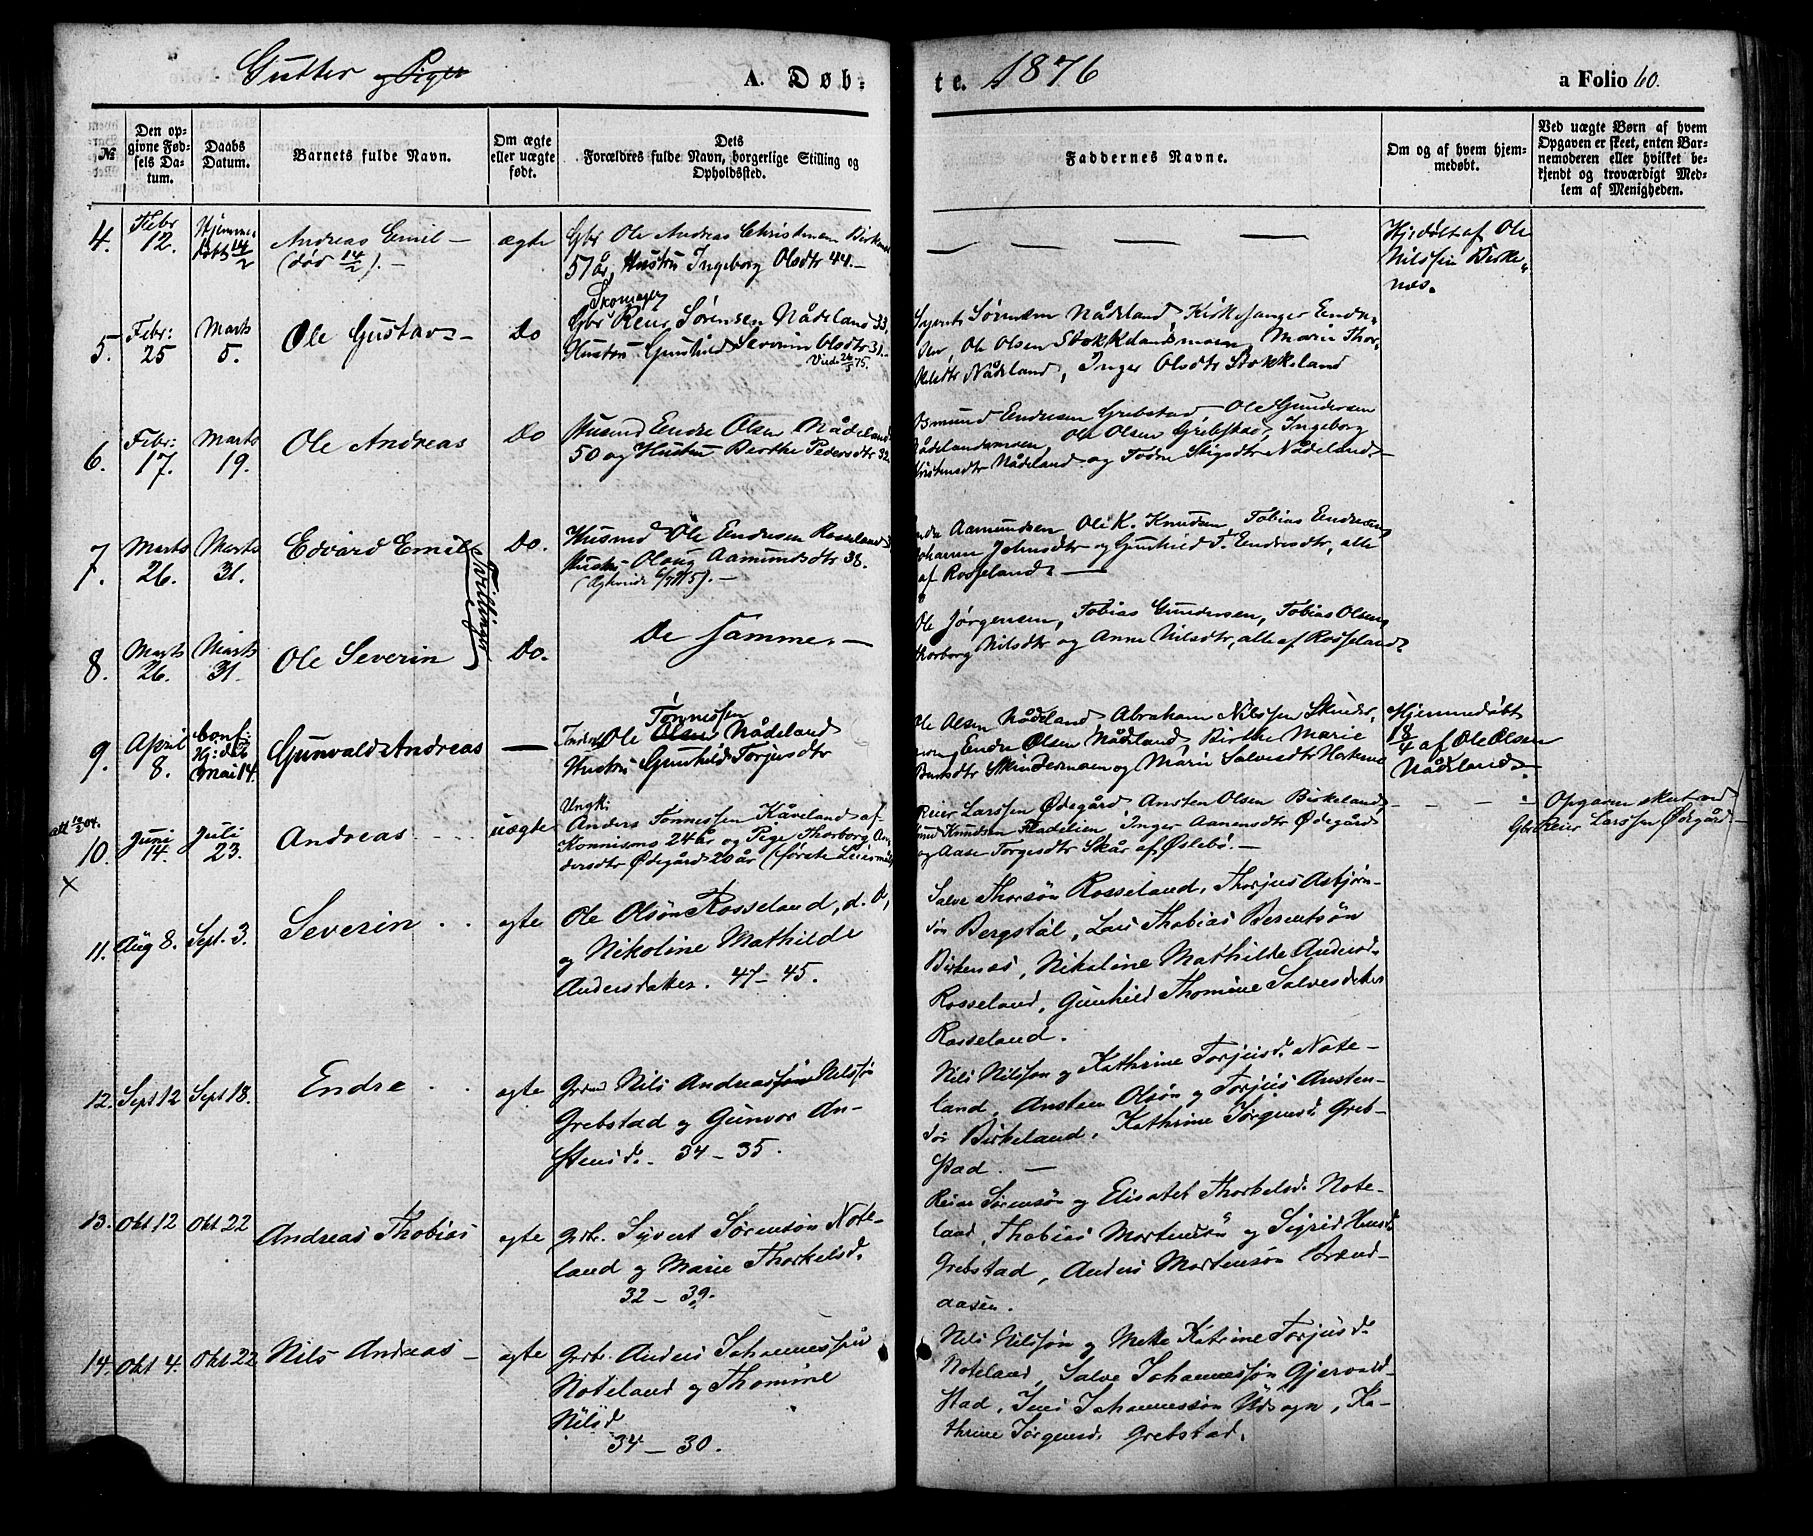 Gutter og Piger
A. Døb-
te. 1876
a Folio 60.
№
Den opgivne Fødsels Datum.
Daabs Datum.
Barnets fulde Navn.
Om ægte eller uægte født.
Dets Forældres fulde Navn, borgerlige Stilling og Opholdssted.
Faddernes Navne.
Om og af hvem hjemmedøbt.
Ved uægte Børn af hvem Opgaven er skeet, enten Barnemoderen eller hvilket bekjendt og troværdigt Medlem af Menigheden.
4. Febr 12. Hjemmedøbt 14/2
Andreas Emil –
(død 14/2). –
ægte
Gbr Ole Andreas Christensen
57 år, Hustru Ingeborg Olsdtr 44. –
Hj.døbt af Ole
Nilssen Birke-
nes.
5. Febr: 25 Marts 5.
Ole Gustav –
Do
Skomager
Gbr Reier Sørensen Nådeland 33,
Hustru Gunhild Severine Olsdtr 31. –
Sørensen Nådeland, Kirkesanger
Ole Olsen Stokkelandsmoen, Marie Thor-
keldtr Nådeland, Inger Olsdtr Stokkeland
6. Febr: 17. Marts 19.
Ole Andreas
Do
Husmd Endre Olsen Nådeland
50 og Hustru Berthe Pedersdtr 32.
Endresen Grebstad, Ole Gundersen
Nådelandsmoen, Ole Olsen Grebstad, Ingeborg
Nådeland og Todne Stigsdtr Nådeland
7. Marts 26. Marts 31.
Edvard Emil
Tvillinger
Do.
Husmd Ole Endresen Rosseland
Hustru Olaug Aamundsdtr 38.
Aamundsen, Ole K. Knudsen, Tobias Endresen,
Johanne Johnsdtr og Gunhild T. Endresdtr, alle
af Rosseland. –
8. Marts 26. Marts 31.
Ole Severin
Do.
De samme. –
Ole Jørgensen, Tobias Gundersen, Tobias Olsen,
Thorborg Nilsdtr og Anne Nilsdtr, alle af Rosseland.
9. April 8. Conf. Hj:døbt Mai 14.
Gunvald Andreas
–
Tønnessen
Ole Olsen Nådeland
Hustru Gunhild Torjusdtr
Ole Olsen Nådeland, Abraham Nilssen Skinder-
moen, Endre Olsen Nådland, Birthe Marie
Skindermoen og Marie Salvesdtr
Hjemmedøbt
18/4 af Ole Olsen
Nådeland.
10. Juni 14. Juli 23.
Andreas
uægte
Ungk:
Anders Tønnessen Kåveland af
24 år og Pige Thorborg An-
dersdtr Ødegård 20 år (første Leiermål)
Reier Larssen Ødegård, Ansten Olsen Birkeland,
Knud Knudsen Fladelien, Inger Aanensdtr Ødegård
og Aase Torgesdtr Skår af Øslebø. –
Opgaven skeet ved
Gbr Reier Larssen Ødegård –
11. Aug 8. Sept. 3.
Severin
egte
Ole Olsøn Rosseland, d. O,
og Nikoline Mathilde
Andersdatter. 47 – 45.
Salve Thorsøn Rosseland, Thorjus Asbjørn-
søn Bergstøl, Lars Thobias Berentsøn
Birkenæs, Nikoline Mathilde Andersd.
Rosseland, Gunhild Thomine Salvesdatter
Rosseland.
12. Sept 12 Sept 18.
Endre
egte
Nils Andreassøn Nilssø
Grebstad og Gunvor An-
stensd. 34 – 35.
Nils Nilsson og Kathrine Torjusd. Note-
land, Ansten Olsøn og Torjus Ansten-
søn Birkeland, Kathrine Jørgensd. Greb-
stad. –
13. Okt 12 Okt 22
Andreas Thobias
egte
Grbr. Syvert Sørensøn Note-
land og Marie Thorkelsd.
32 – 39.
Reier Sørensøn og Elisabet Thorkelsd. Note-
land, Thobias Mortensøn og Sigrid
Grebstad, Anders Mortensøn Brænd-
aasen.
14. Okt 4. Okt 22
Nils Andreas –
egte
Grbr. Anders Johannessøn
Noteland og Thomine
Nilsd.
34 – 30.
Nils Nilssøn og Mette Katrine Torjusd.
Noteland, Salve Johannessøn Gjervold-
stad, Jens Johannessøn Udsogn, Ka-
thrine Jørgensd. Grebstad.